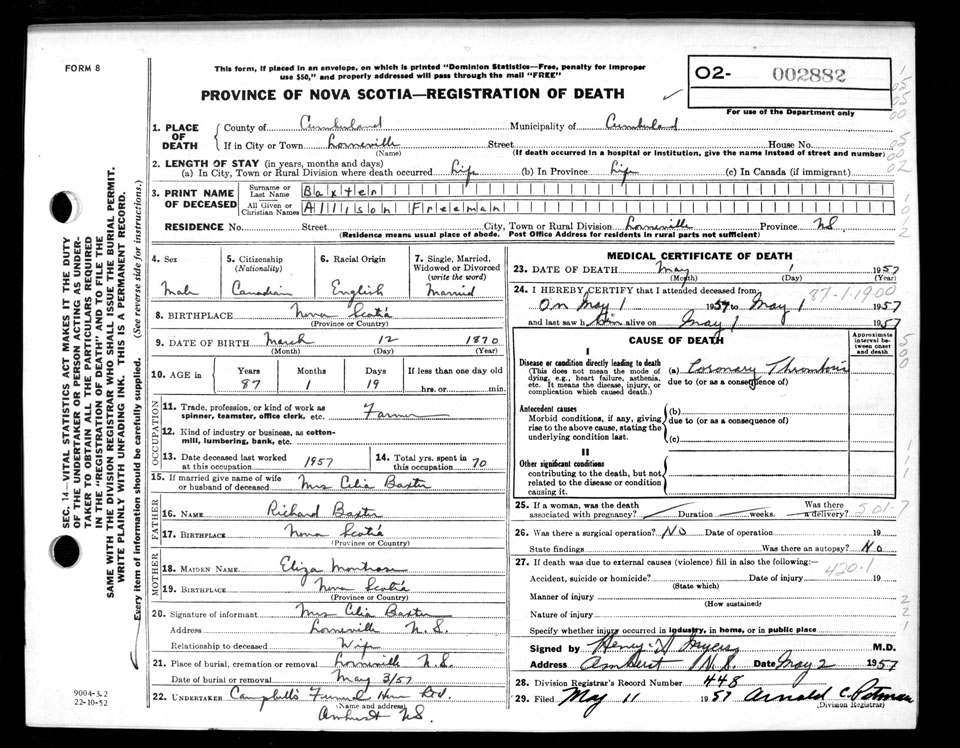 FORM 8
This form, if placed in an envelope, on which is printed "Dominion Statistics—Free, penalty for improper
use $50," and properly addressed will pass through the mail "FREE"
PROVINCE OF NOVA SCOTIA—REGISTRATION OF DEATH
O2- 002882
For use of the Department only
1. PLACE OF DEATH
County of Cumberland Municipality of Cumberland
If in City or Town Lorneville Street House No.
(Name) (If death occurred in a hospital or institution, give the name instead of street and number)
2. LENGTH OF STAY (in years, months and days)
(a) In City, Town or Rural Division where death occurred Life (b) In Province Life (c) In Canada (if immigrant)
3. PRINT NAME OF DECEASED
Surname or Last Name Baxter
All Given or Christian Names Allison Freeman
RESIDENCE No. Street City, Town or Rural Division Lorneville Province NS
(Residence means usual place of abode. Post Office Address for residents in rural parts not sufficient)
4. Sex
Male
5. Citizenship (Nationality)
Canadian
6. Racial Origin
English
7. Single, Married, Widowed or Divorced (write the word)
Married
8. BIRTHPLACE Nova Scotia
(Province or Country)
9. DATE OF BIRTH March 12 1870
(Month) (Day) (Year)
10. AGE in Years Months Days If less than one day old
87 1 19 hrs. or min.
OCCUPATION
11. Trade, profession, or kind of work as spinner, teamster, office clerk, etc. Farmer
12. Kind of industry or business, as cotton-mill, lumbering, bank, etc.
13. Date deceased last worked at this occupation 1957
14. Total yrs. spent in this occupation 70
15. If married give name of wife or husband of deceased Mrs Celia Baxter
FATHER
16. NAME Richard Baxter
17. BIRTHPLACE Nova Scotia
(Province or Country)
MOTHER
18. MAIDEN NAME Eliza Montrose
19. BIRTHPLACE Nova Scotia
(Province or Country)
20. Signature of informant Mrs Celia Baxter
Address Lorneville N.S.
Relationship to deceased Wife
21. Place of burial, cremation or removal Lorneville N.S.
Date of burial or removal May 3/57
22. UNDERTAKER Campbell's Funeral Home Ltd.
(Name and address)
Amherst NS.
MEDICAL CERTIFICATE OF DEATH
23. DATE OF DEATH May 1 1957
(Month) (Day) (Year)
24. I HEREBY CERTIFY that I attended deceased from
87-1-19-00
On May 1 1957 to May 1 1957
and last saw him alive on May 1 1957
CAUSE OF DEATH
Approximate interval between onset and death
I
Disease or condition directly leading to death
(This does not mean the mode of dying, e.g., heart failure, asthenia, etc. It means the disease, injury, or complication which caused death.)
(a) Coronary Thrombosis
due to (or as a consequence of)
Antecedent causes
Morbid conditions, if any, giving rise to the above cause, stating the underlying condition last.
(b)
due to (or as a consequence of)
(c)
II
Other significant conditions
contributing to the death, but not related to the disease or condition causing it.
25. If a woman, was the death associated with pregnancy? Duration weeks. Was there a delivery?
501-7
26. Was there a surgical operation? No Date of operation 19
State findings Was there an autopsy? No
27. If death was due to external causes (violence) fill in also the following:—
420.1
Accident, suicide or homicide? Date of injury 19
(State which)
Manner of injury
(How sustained)
Nature of injury
Specify whether injury occurred in industry, in home, or in public place
Signed by M.D.
Address Amherst N.S. Date May 2 1957
28. Division Registrar's Record Number 448
29. Filed May 11 1957 Arnold C. Potman
(Division Registrar)
SEC. 14—VITAL STATISTICS ACT MAKES IT THE DUTY
OF THE UNDERTAKER OR PERSON ACTING AS UNDER-
TAKER TO OBTAIN ALL THE PARTICULARS REQUIRED
IN THE "REGISTRATION OF DEATH" AND TO FILE THE
SAME WITH THE DIVISION REGISTRAR WHO SHALL ISSUE THE BURIAL PERMIT.
WRITE PLAINLY WITH UNFADING INK. THIS IS A PERMANENT RECORD.
Every item of information should be carefully supplied. (See reverse side for instructions.)
9004-3.2
22-10-52